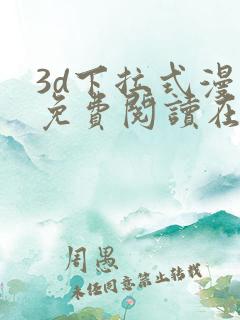 3d下拉式漫
免費閱讀在
周愚
未经同意禁止转载